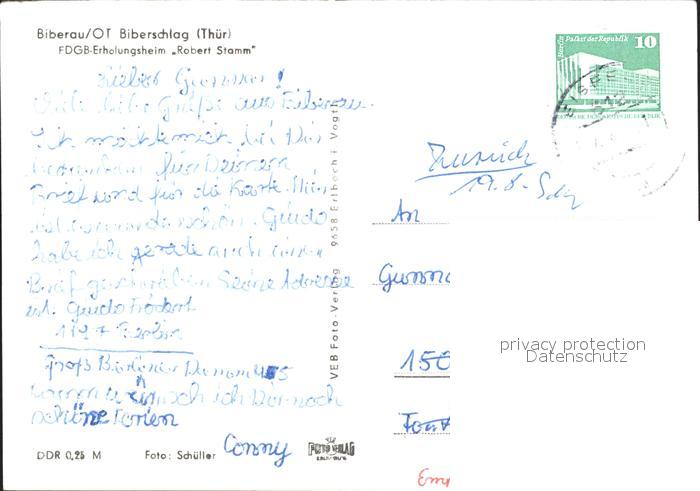 Biberau/OT Biberschlag (Thür)
FDGB-Erholungsheim „Robert Stamm"
Berlin Palast der Republik
10
Lieber Gunnar!
Viele liebe Grüße aus Biberau.
Ich möchte mich bei Dir
für Deinen
Brief und für die Karte. Hier
ist es wunderschön. Guido
habe ich gerade auch einen
Brief geschrieben. Seine Adresse
ist. Guido
Berlin
Groß Berliner Damm
wünsch ich Dir noch
schöne Ferien
Conny
VEB Foto-Verlag 9658 Erlbach i. Vogt
Zurück
19.8.
An
150
privacy protection
Datenschutz
DDR 0,25 M
Foto: Schüller
FOTO VERLAG